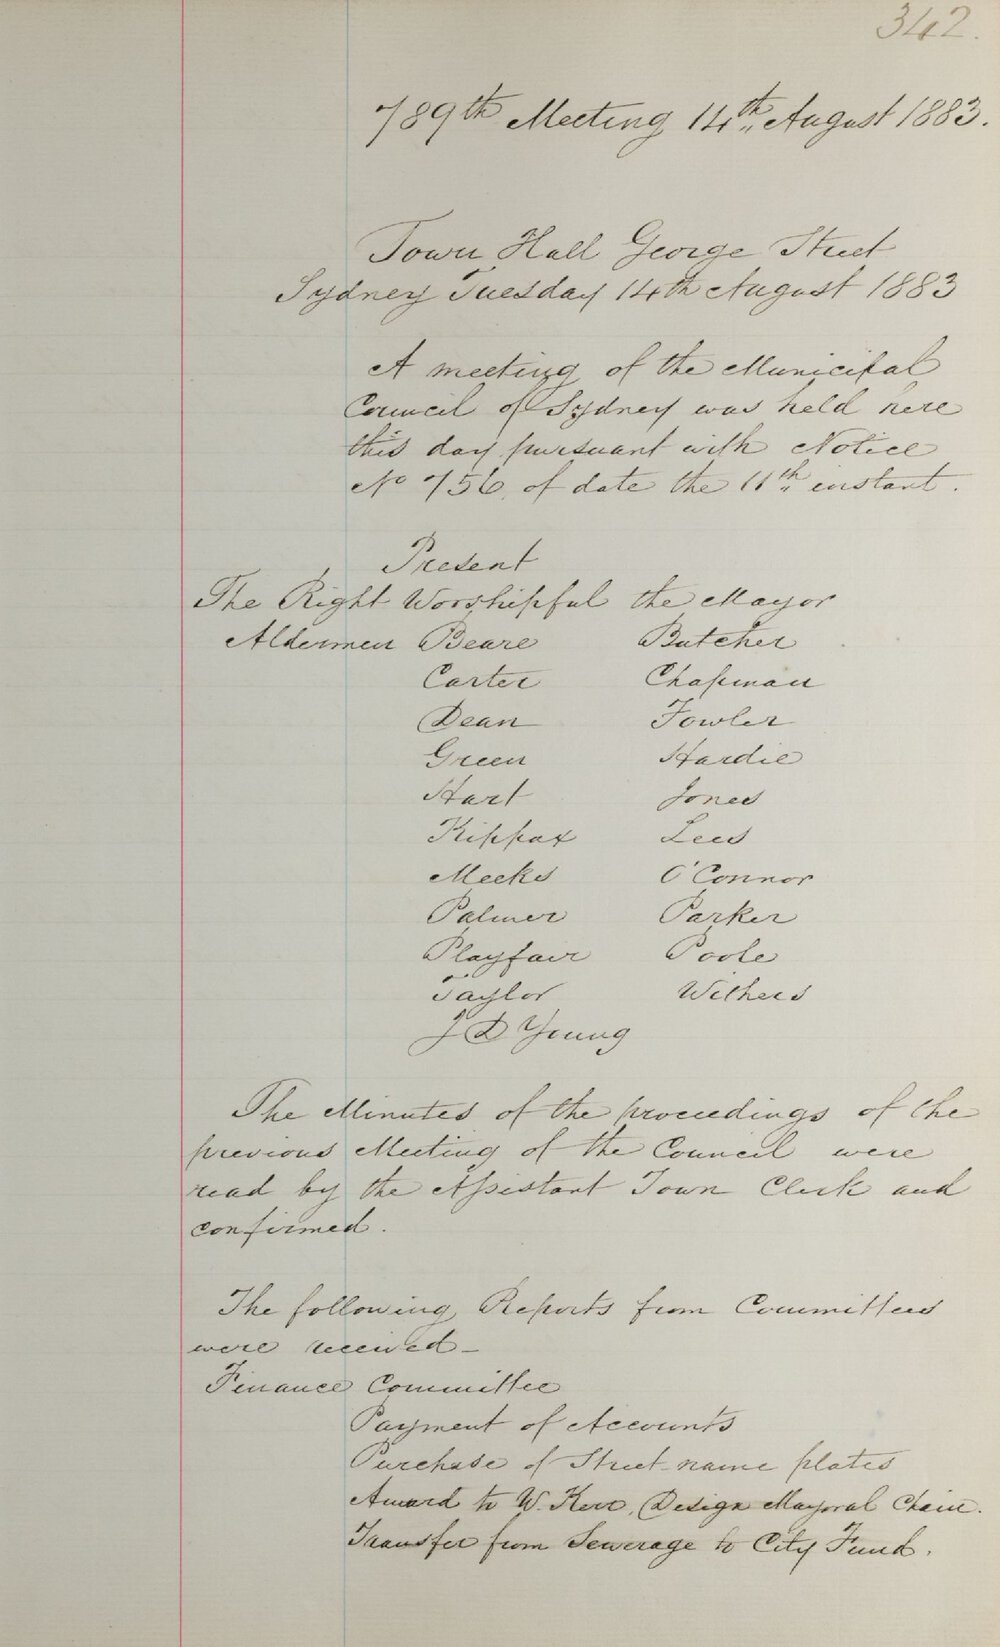 342.
789th Meeting 14th August 1883.
Town Hall George Street
Sydney Tuesday 14th August 1883
A meeting of the Municipal
Council of Sydney was held here
this day pursuant with Notice
No 756 of date the 11th instant.
Present
The Right Worshipful the Mayor
Aldermen Beare Butcher
Carter Chapman
Dean Fowler
Green Hardie
Hart Jones
Kippax Lees
Meeks O'Connor
Palmer Parker
Playfair Poole
Taylor Withers
J D Young
The Minutes of the proceedings of the
previous Meeting of the Council were
read by the Assistant Town Clerk and
confirmed.
The following Reports from Committees
were received_
Finance Committee
Payment of Accounts
Purchase of Street name plates
Award to W. Kerr, Design Mayoral Chain.
Transfer from Sewerage to City Fund.